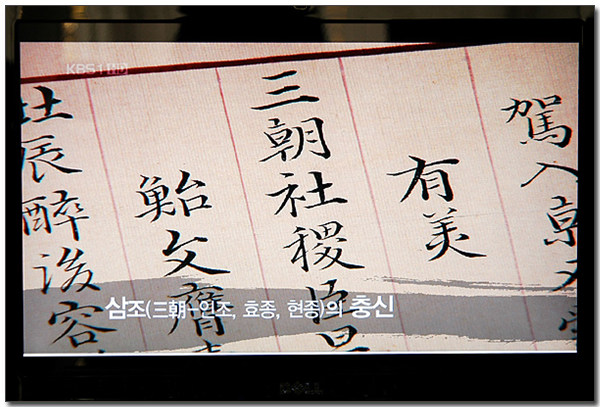 KBS1
駕入京
有美
三朝社稷臣
鮐文膺
辰醉後容
삼조(三朝-인조, 효종, 현종)의 충신
DELL